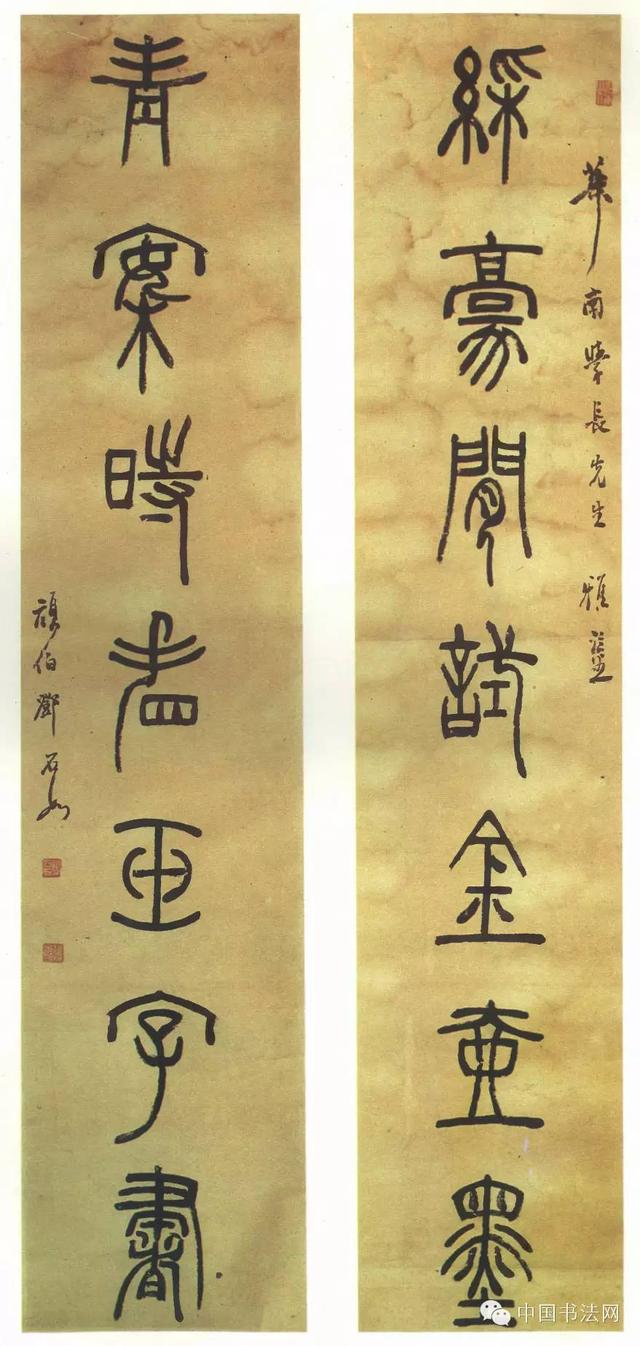 華南學長先生 雅鑒
綵豪閒試金壺墨
青案時看玉字書
頑伯鄧石如
中国书法网